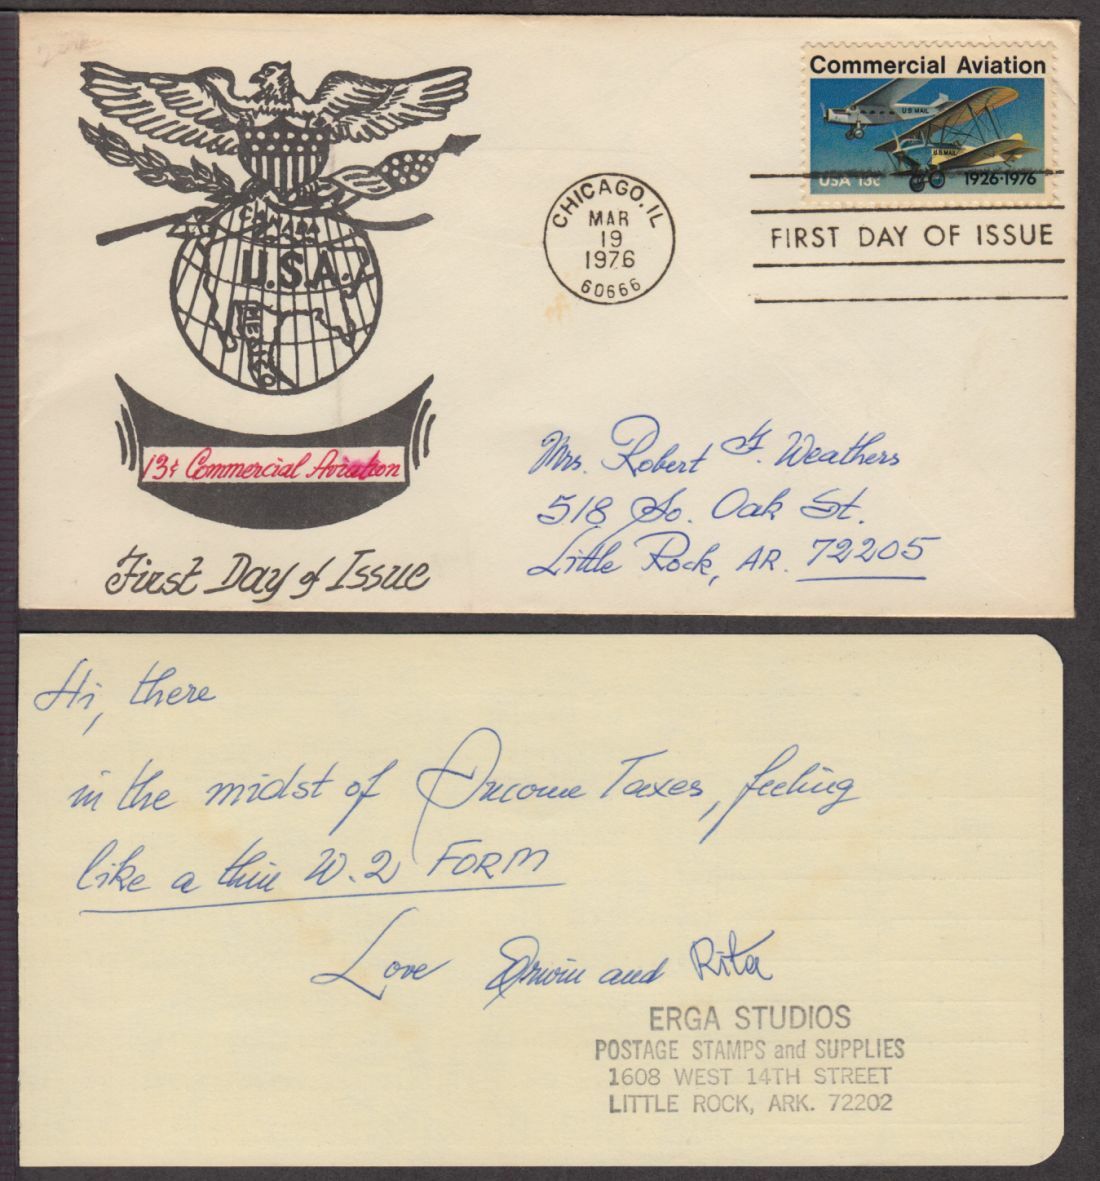 Commercial Aviation
U.S. MAIL
U.S. MAIL
USA 13c 1926·1976
CHICAGO, IL
MAR
19
1976
60666
FIRST DAY OF ISSUE
CANADA
U.S.A.
MEXICO
13¢ Commercial Aviation
First Day of Issue
Mrs. Robert F. Weathers
518 So. Oak St.
Little Rock, AR. 72205
Hi, there
in the midst of Income Taxes, feeling
like a thin W.2 FORM
Love Erwin and Rita
ERGA STUDIOS
POSTAGE STAMPS and SUPPLIES
1608 WEST 14TH STREET
LITTLE ROCK, ARK. 72202